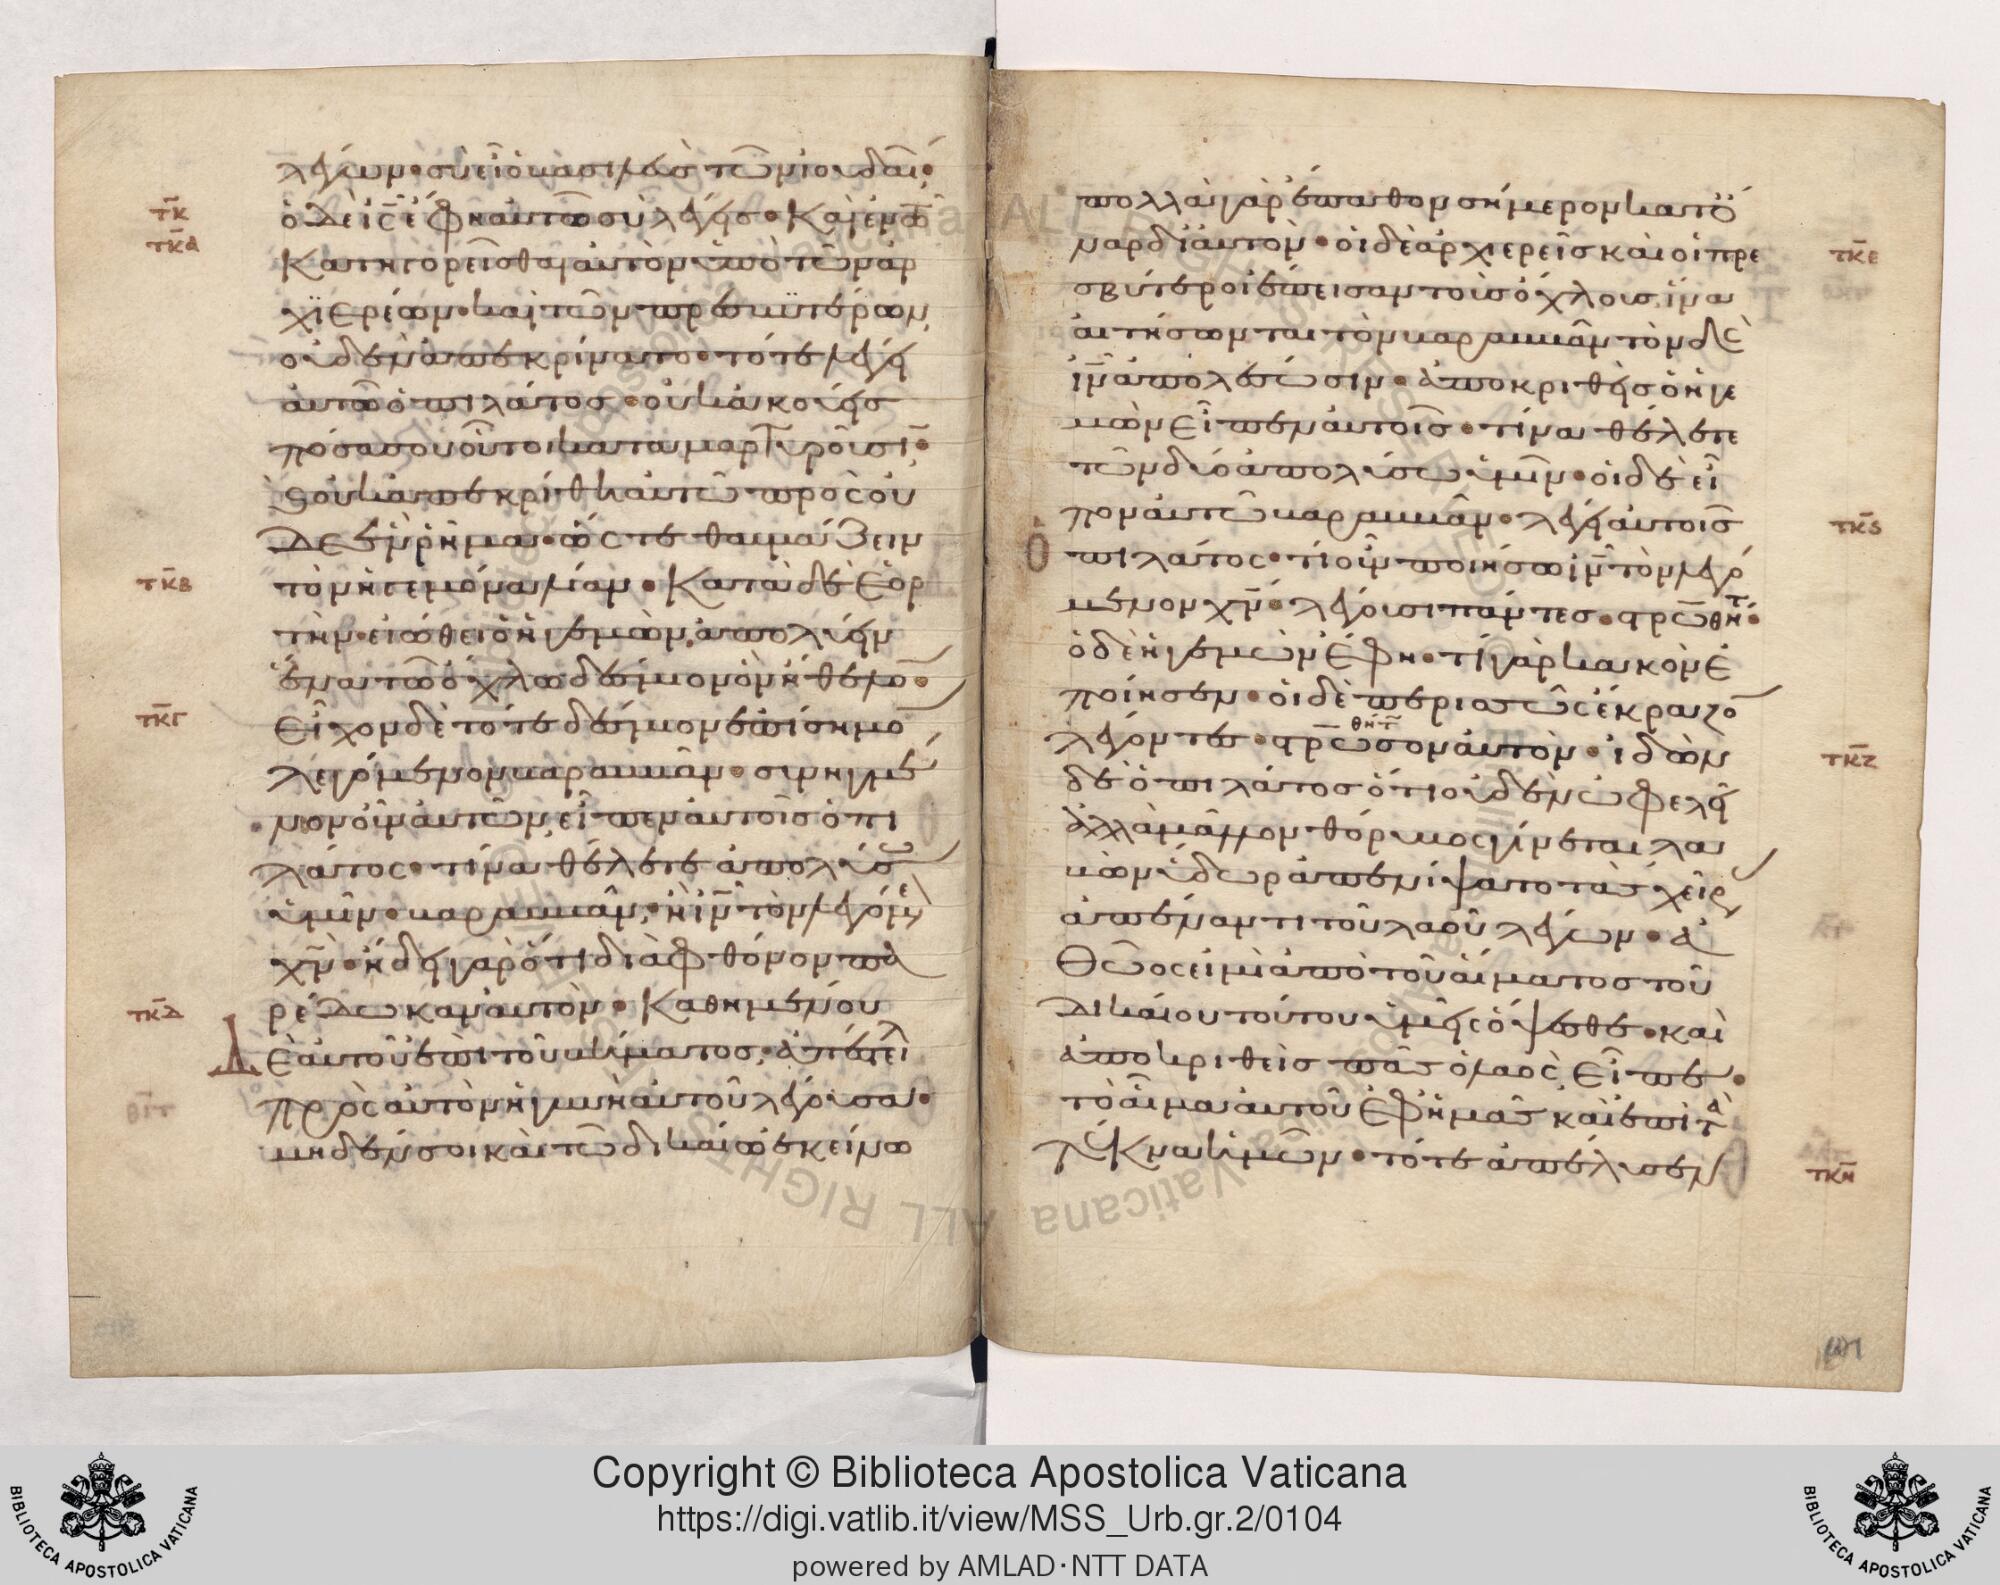 λέγων· σὺ εἶ ὁ βασιλεὺς τῶν ἰουδαί·
ὁ δὲ ἰς ἔφη αὐτῶ σὺ λέγεις· Καὶ ἐν τῶ
Κατηγορεῖσθαι αὐτὸν ὑπὸ τῶν ἀρ
χϊερέων· καὶ τῶν πρεσβυτέρων,
οὐδὲν ἀπεκρίνατο· τότε λέγει
αὐτῶ ὁ πιλάτος· οὐκ ἀκούεις
πόσα σου οὗτοι καταμαρτυροῦσι·
ϗ οὐκ ἀπεκρίθη αὐτῶ πρὸς οὐ
δὲ ἓν ῥῆμα· ὥστε θαυμάζειν
τὸν ἡγεμόνα λίαν· Κατὰ δὲ Ἑορ
τὴν· εἰώθει ὁ ἡγεμὼν, ἀπολύειν
ἕνα τῶ ὄχλω δέσμιον ὃν ἤθελο·
Εἶχον δὲ τότε δέσμιον ἐπίσημο
λεγόμενον βαραββᾶν· συνηγμέ
νων οὖν αὐτῶν, εἶπεν αὐτοῖς ὁ πι
λάτος· τίνα θέλετε ἀπολύσ
ὑμῖν· βαραββᾶν, ἢ ιν τὸν λεγόμε
χν· ἤδει γὰρ ὅτι διὰ φθόνον πα
ρέδωκαν αὐτόν· Καθημένου
Δὲ αὐτοῦ ἐπὶ τοῦ βήματος, ἀπέστειλ
πρὸς αὐτὸν ἡ γυνὴ αὐτοῦ λέγουσα·
μηδὲν σοι καὶ τῶ δικαίω ἐκείνω
τκ
τκα
τκβ
τκγ
τκδ
πολλὰ γὰρ ἔπαθον σήμερον κατ ὄ
ναρ δι αὐτόν· οἱ δὲ ἀρχιερεῖς καὶ οἱ πρε
σβύτεροι ἔπεισαν τοὺς ὄχλους, ἵνα
αἰτήσωνται τὸν βαραββᾶν τὸν δὲ
ιν ἀπολέσωσιν· ἀποκριθεὶς ὁ ἡγε
μὼν Εἶπεν αὐτοῖς· τίνα θέλετε
τῶν δύο ἀπολύσω ὑμῖν· οἱ δὲ εἶ
πον αὐτῶ βαραββᾶν· λέγει αὐτοῖς
πιλάτος· τί οὖν ποιήσω ιν τὸν λεγό
μενον χν· λέγουσι πάντες· στρωθητ·
ὁ δὲ ἡγεμὼν ἔφη· τί γὰρ κακὸν ἐ
ποίησεν· οἱ δὲ περισσῶς ἔκραζο
λέγοντες· στρωσον αὐτόν· ἰδὼν
θητ
δὲ ὁ πιλάτος ὅτι οὐδὲν ὠφελεῖ
ἀλλὰ μᾶλλον θόρυβος γίνεται λα
βὼν ὕδωρ ἀπενίψατο τὰς χεῖρ
ἀπέναντι τοῦ λαοῦ λέγων· ἀ
Θῶος εἰμὶ ἀπὸ τοῦ αἵματος τοῦ
δικαίου τούτου ὑμεῖς ὄψεσθε· καὶ
ἀποκριθεὶς πᾶς ὁ λαὸς, Εἶπε·
τὸ αἷμα αὐτοῦ Ἐφ ἡμᾶς καὶ ἐπὶ τὰ
τέκνα ἡμῶν· τότε ἀπέλυσεν
τκε
τκς
τκζ
τκη
Copyright © Biblioteca Apostolica Vaticana
https://digi.vatlib.it/view/MSS_Urb.gr.2/0104
powered by AMLAD·NTT DATA
BIBLIOTECA APOSTOLICA VATICANA
BIBLIOTECA APOSTOLICA VATICANA